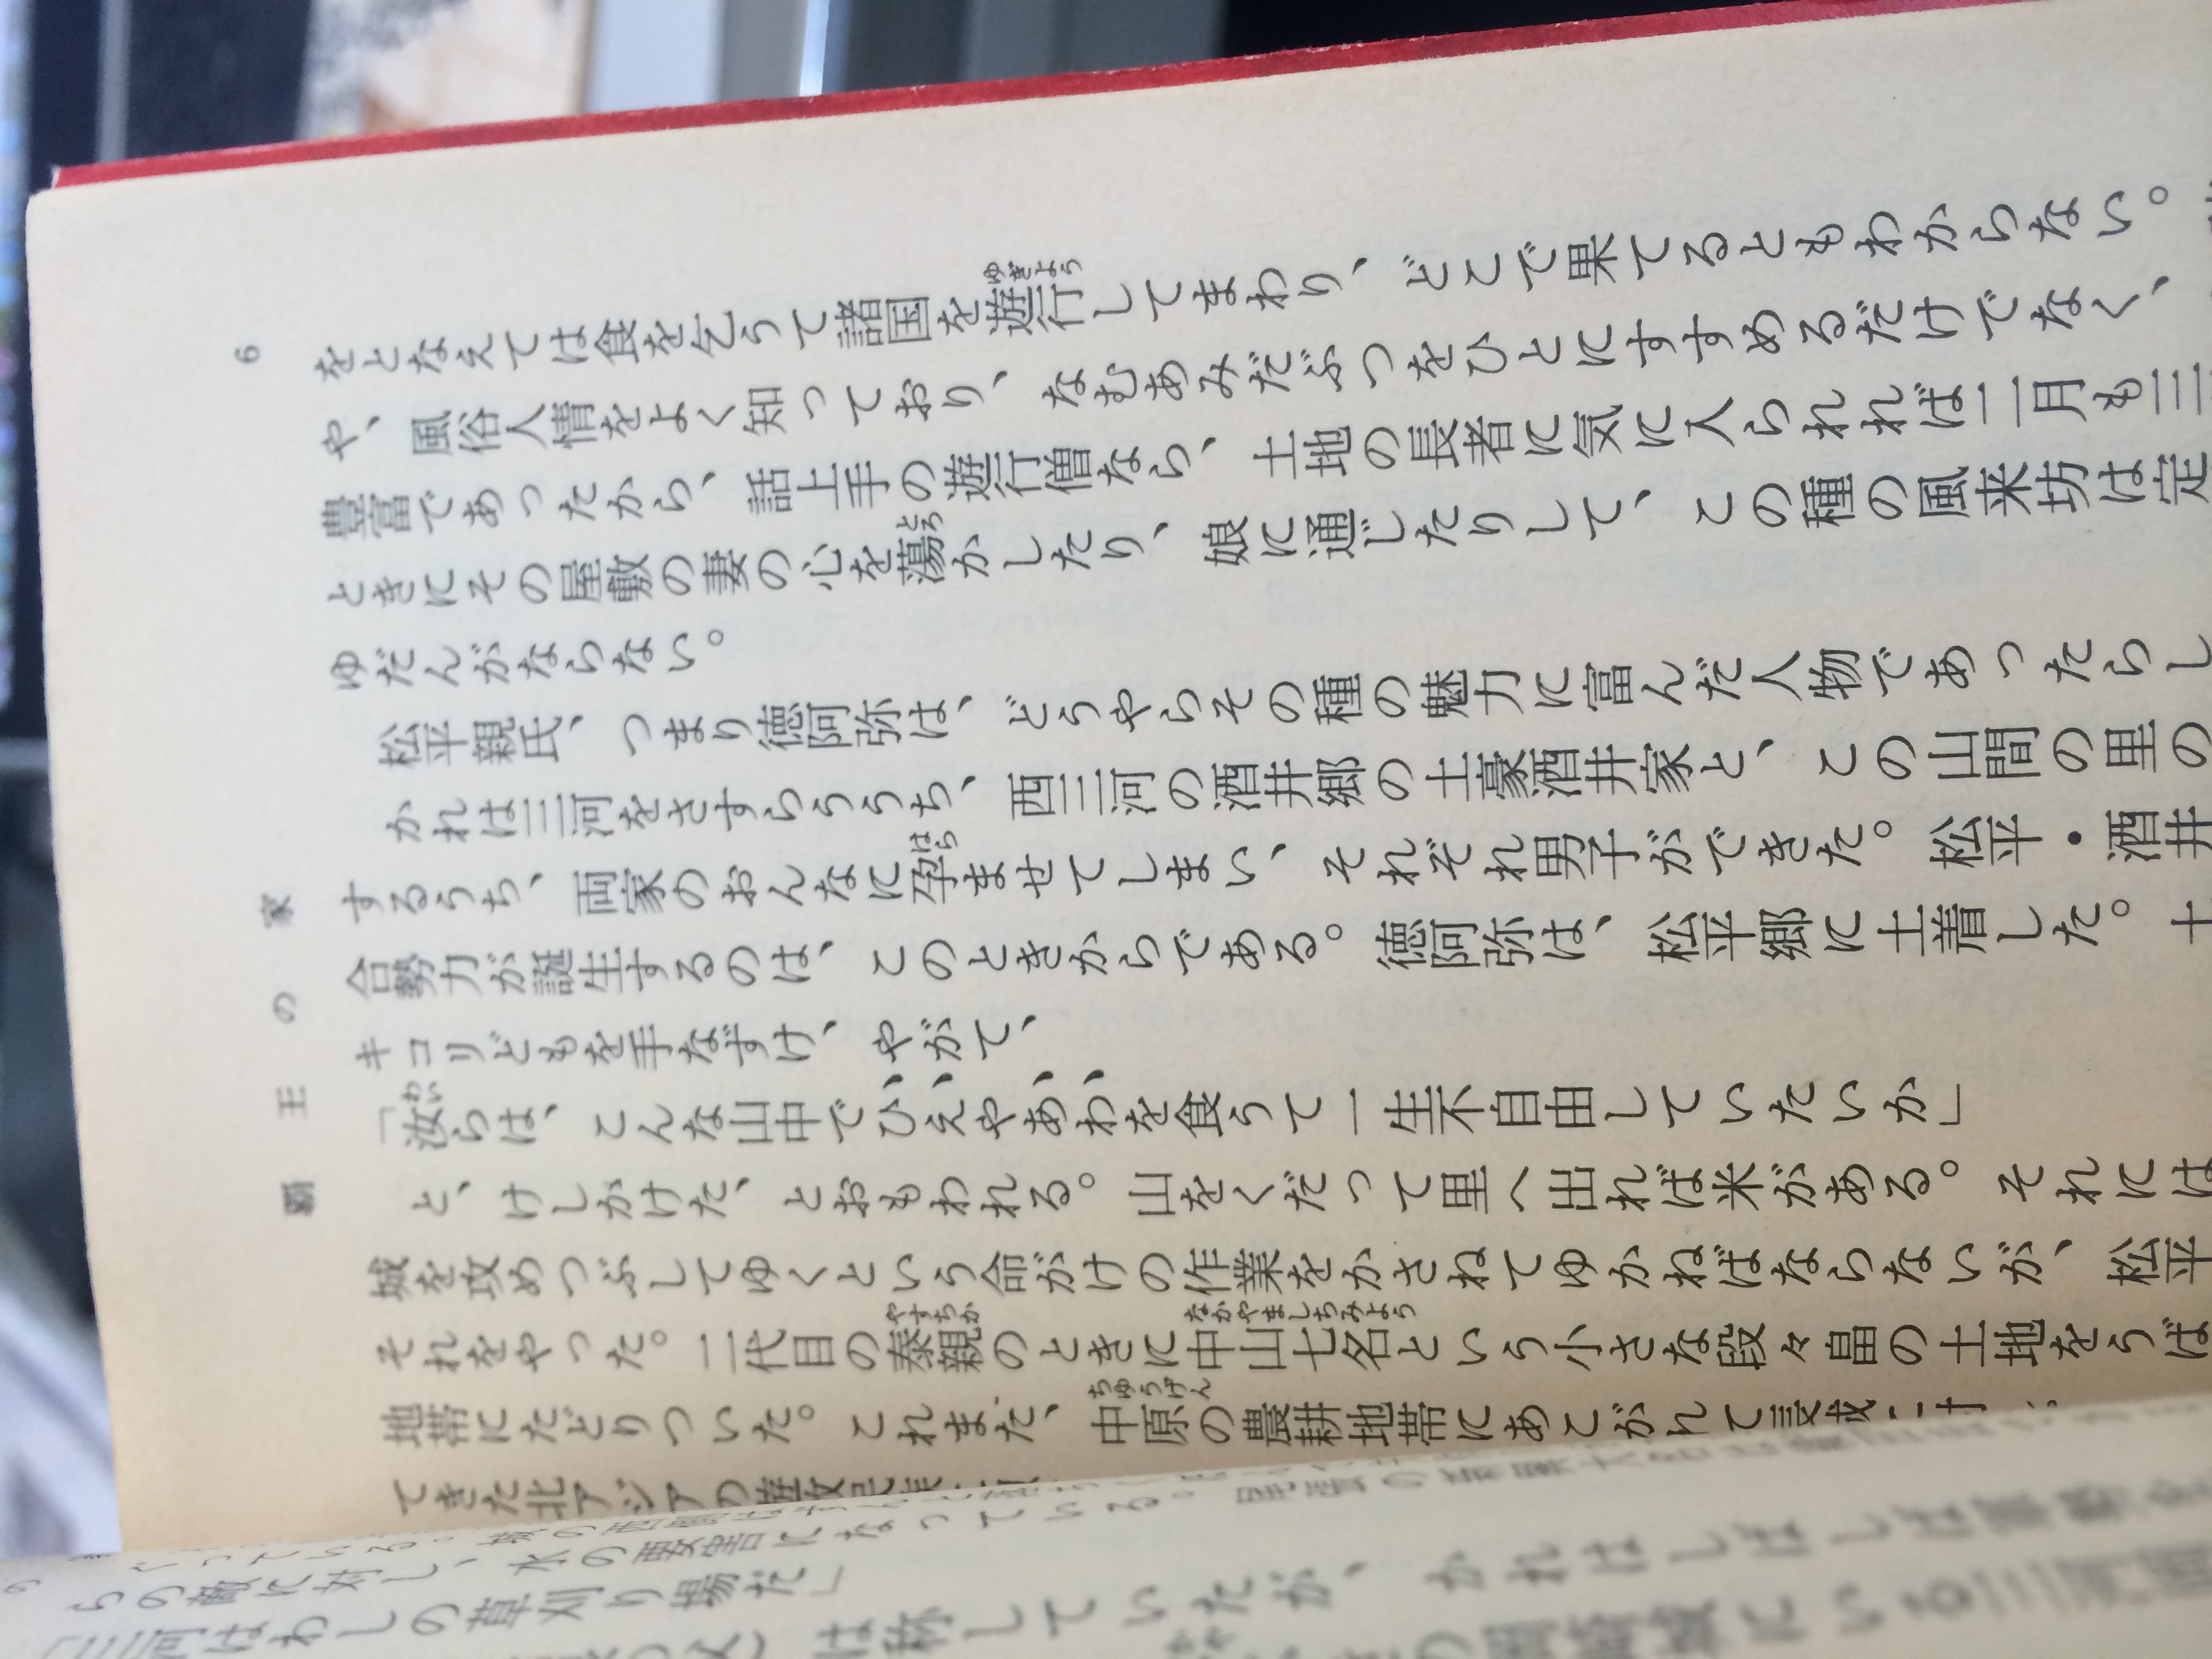 6
覇王の家
をとなえては食を乞うて諸国を遊行してまわり、どこで果てるともわからない。
ゆぎよう
や、風俗人情をよく知っており、なむあみだぶつをひとにすすめるだけでなく、
豊富であったから、話上手の遊行僧なら、土地の長者に気に入られれば二月も三
ときにその屋敷の妻の心を蕩かしたり、娘に通じたりして、この種の風来坊は定
とろ
ゆだんがならない。
松平親氏、つまり徳阿弥は、どうやらその種の魅力に富んだ人物であったらし
かれは三河をさすらううち、西三河の酒井郷の土豪酒井家と、この山間の里の
するうち、両家のおんなに孕ませてしまい、それぞれ男子ができた。松平・酒井
はら
合勢力が誕生するのは、このときからである。徳阿弥は、松平郷に土着した。土
キコリどもを手なずけ、やがて、
「汝らは、こんな山中でひえやあわを食うて一生不自由していたいか」
わい
と、けしかけた、とおもわれる。山をくだって里へ出れば米がある。それには
城を攻めつぶしてゆくという命がけの作業をかさねてゆかねばならないが、松平
それをやった。二代目の泰親のときに中山七名という小さな段々畠の土地をうば
やすちか
なかやましちみよう
地帯にたどりついた。これまた、中原の農耕地帯にあこがれて
ちゆうげん
てきた北アジアの
らの敵に対し、水の要害になっている。
「三河はわしの草刈り場だ」
は称していたが、かれはしばしば